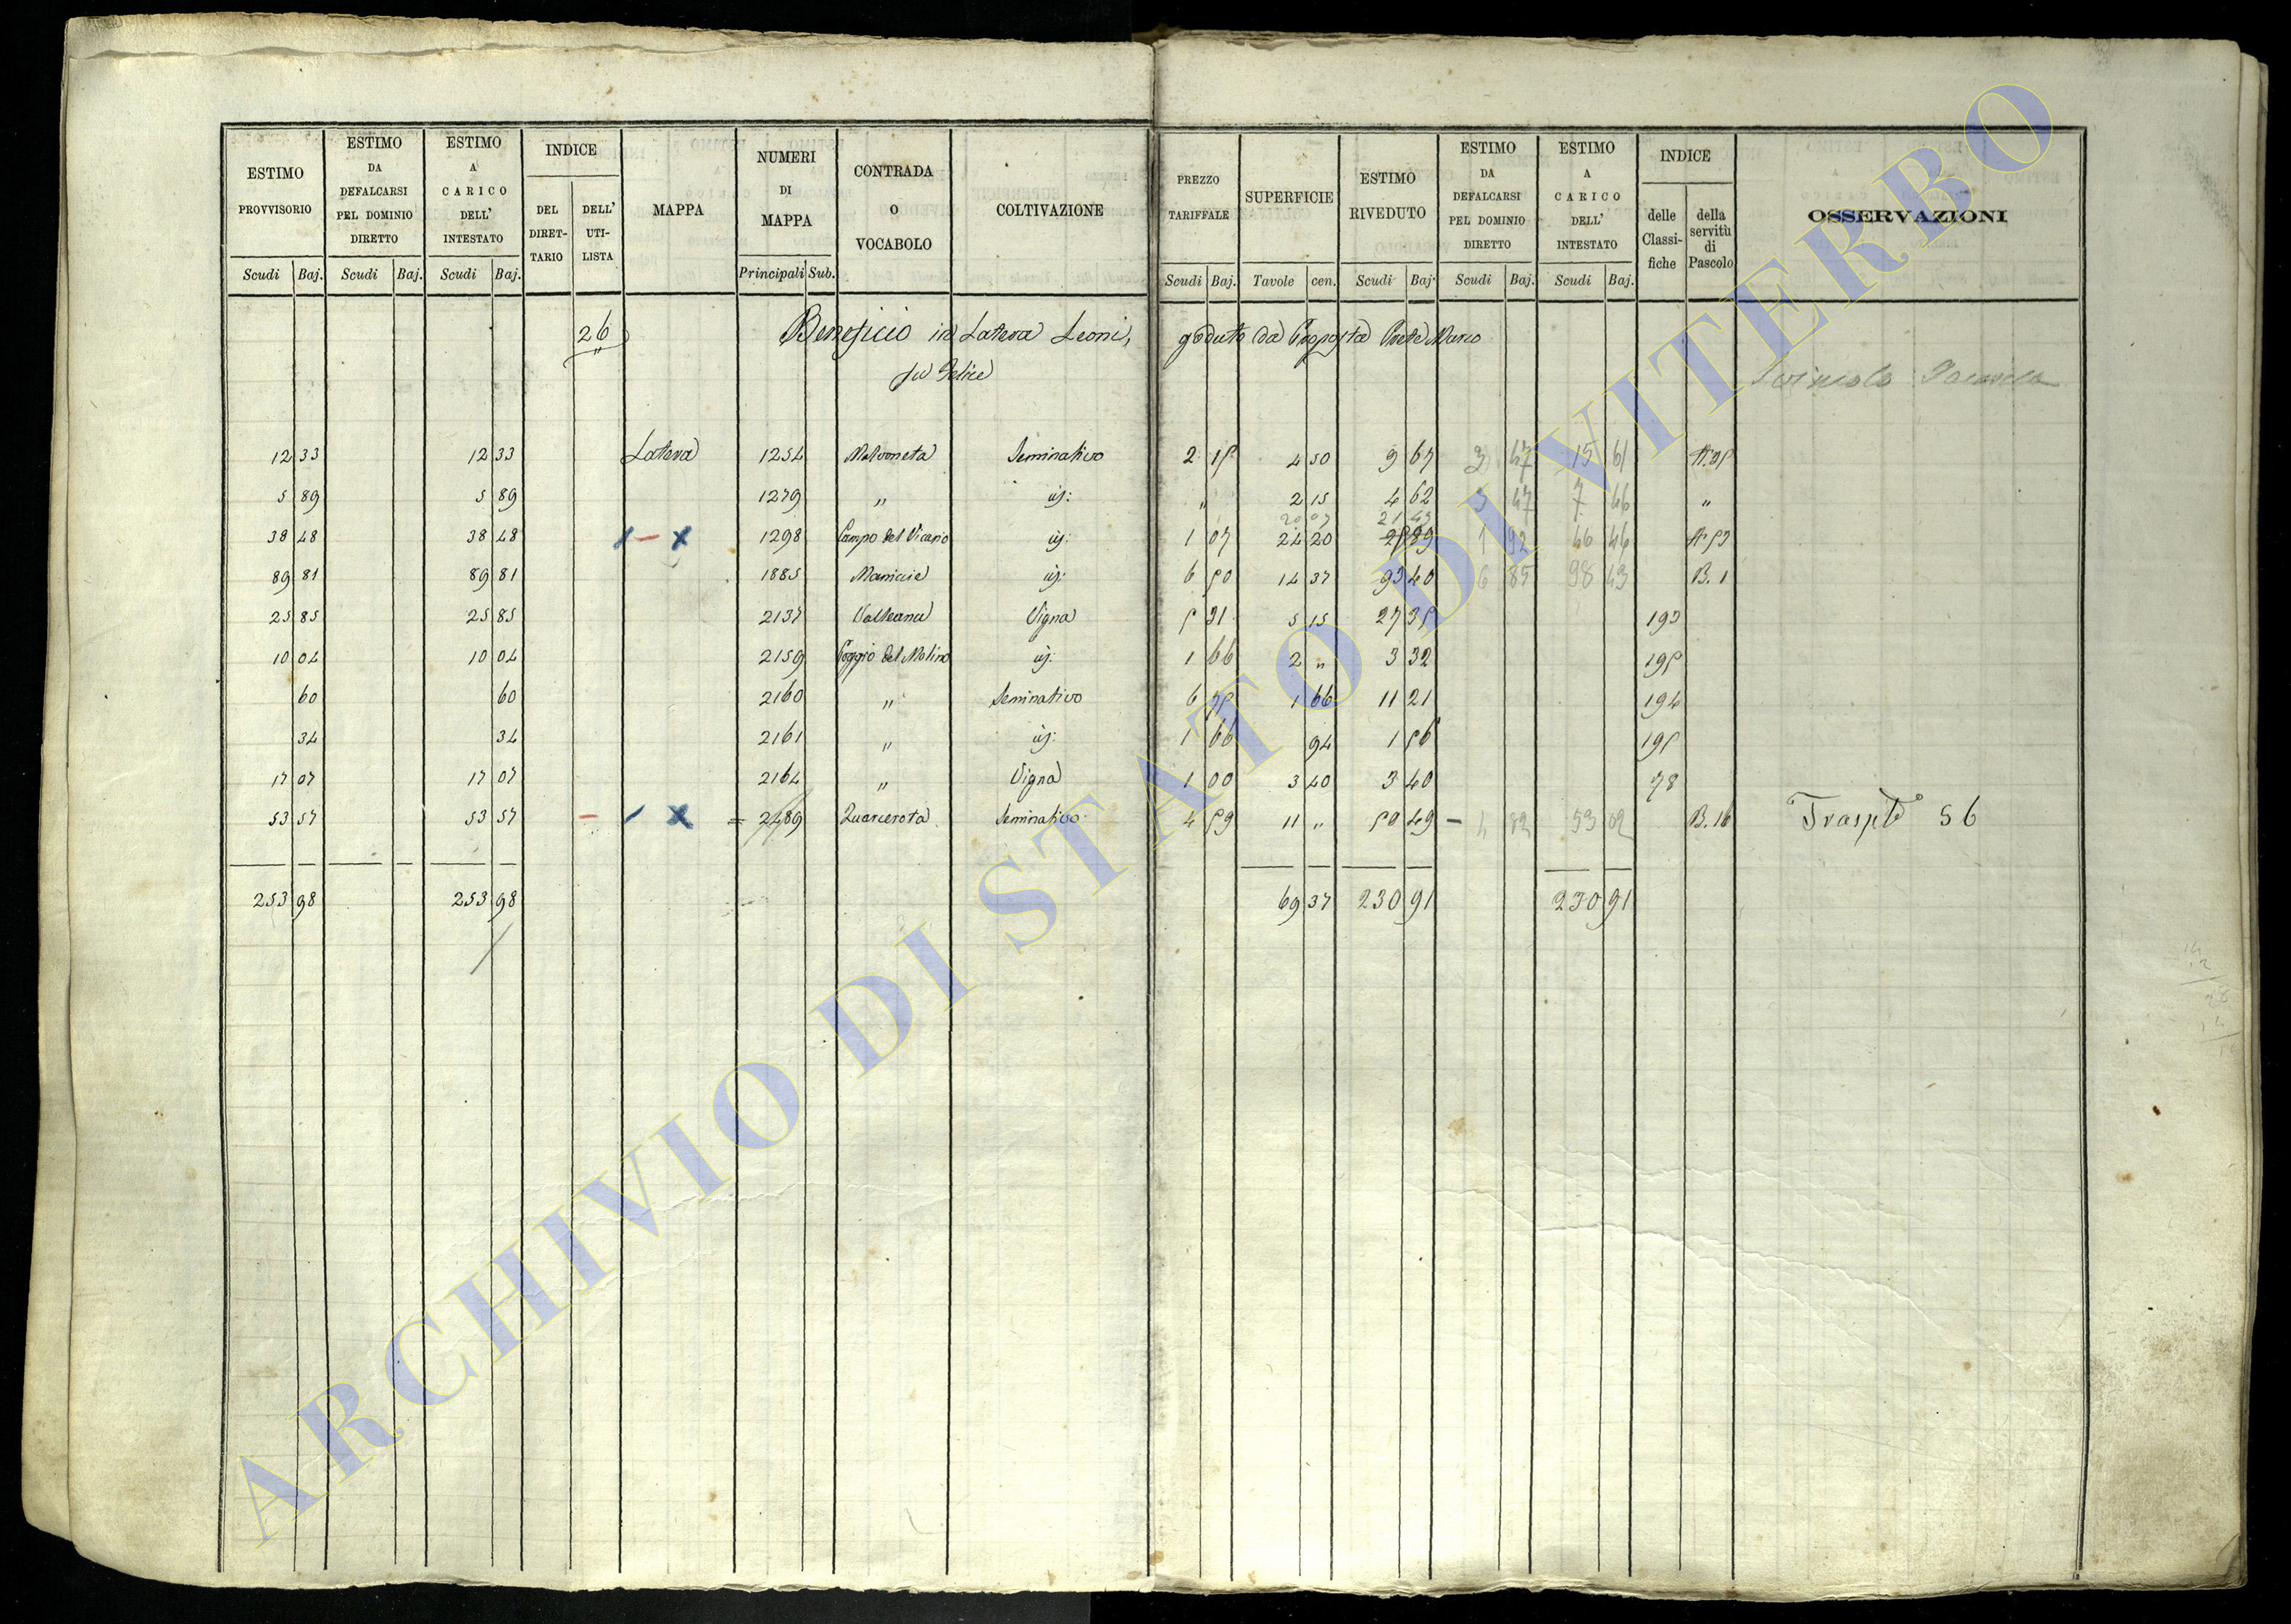 ESTIMO PROVVISORIO | ESTIMO DA DEFALCARSI PEL DOMINIO DIRETTO | ESTIMO A CARICO DELL' INTESTATO | INDICE DEL DIRET-TARIO | DELL' UTI-LISTA | MAPPA | NUMERI DI MAPPA | CONTRADA O VOCABOLO | COLTIVAZIONE | PREZZO TARIFFALE | SUPERFICIE | ESTIMO RIVEDUTO | ESTIMO DA DEFALCARSI PEL DOMINIO DIRETTO | ESTIMO A CARICO DELL' INTESTATO | INDICE delle Classi-fiche | della servitù di Pascolo | OSSERVAZIONI
Scudi Baj. Scudi Baj. Scudi Baj. Principali Sub. Scudi Baj. Tavole cen. Scudi Baj. Scudi Baj. Scudi Baj.
26 Beneficio in Latera Leoni, goduto da Proposta Prete Marco
fu Felice
12 33 12 33 Latera 1254 Seminativo 2 15 4 50 9 67 3 47 15 61
5 89 5 89 1279 " id: " 2 15 4 62 3 47 7 46 "
20 07 21 43
38 48 38 48 1 - x 1298 Campo del Vicario id: 1 07 24 20 25 89 1 92 46 46
89 81 89 81 1885 id: 6 50 14 37 93 40 6 85 98 43 B. 1
25 85 25 85 2137 Vigna 5 31 5 15 27 35 193
10 04 10 04 2159 Poggio del Molino id: 1 66 2 " 3 32 195
60 60 2160 " Seminativo 6 75 1 66 11 21 194
34 34 2161 " id: 1 66 94 1 56 195
17 07 17 07 2164 " Vigna 1 00 3 40 3 40 78
53 57 53 57 - 1 X = 2489 Quarcerota Seminativo 4 59 11 " 50 49 - 4 82 53 02 B. 16 56
253 98 253 98 69 37 230 91 230 91
ARCHIVIO DI STATO DI VITERBO